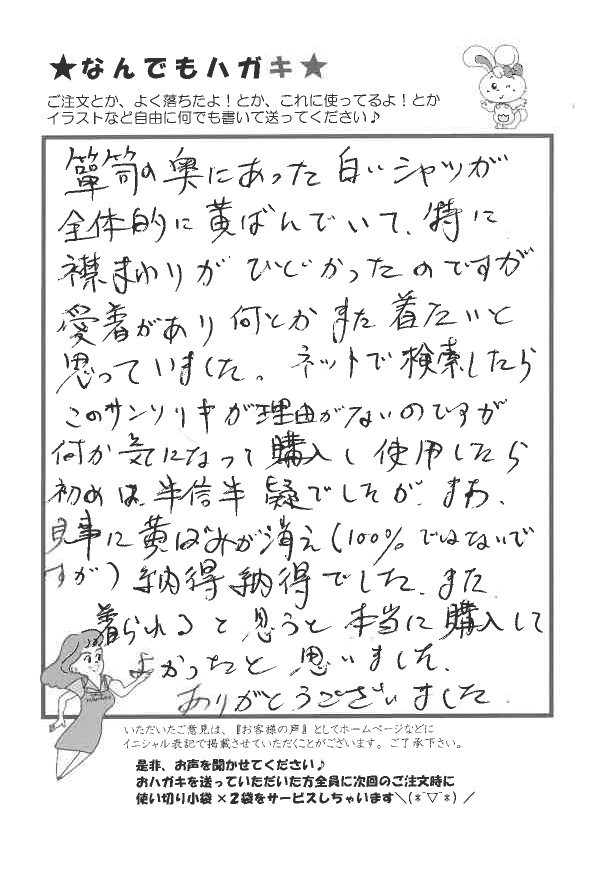 ★なんでもハガキ★
ご注文とか、よく落ちたよ！とか、これに使ってるよ！とか
イラストなど自由に何でも書いて送ってください♪
箪笥の奥にあった白いシャツが
全体的に黄ばんでいて、特に
襟まわりがひどかったのですが
愛着があり何とかまた着たいと
思っていました。ネットで検索したら
このサンソリキが理由がないのですが
何か気になって購入し使用したら
初めは、半信半疑でしたが、まあ、
見事に黄ばみが消え(100%ではないで
すが)納得納得でした。また
着られると思うと本当に購入して
よかったと思いました。
ありがとうございました
いただいたご意見は、『お客様の声』としてホームページなどに
イニシャル表記で掲載させていただくことがございます。ご了承下さい。
是非、お声を聞かせてください♪
おハガキを送っていただいた方全員に次回のご注文時に
使い切り小袋×2袋をサービスしちゃいます＼(*´▽`*)／